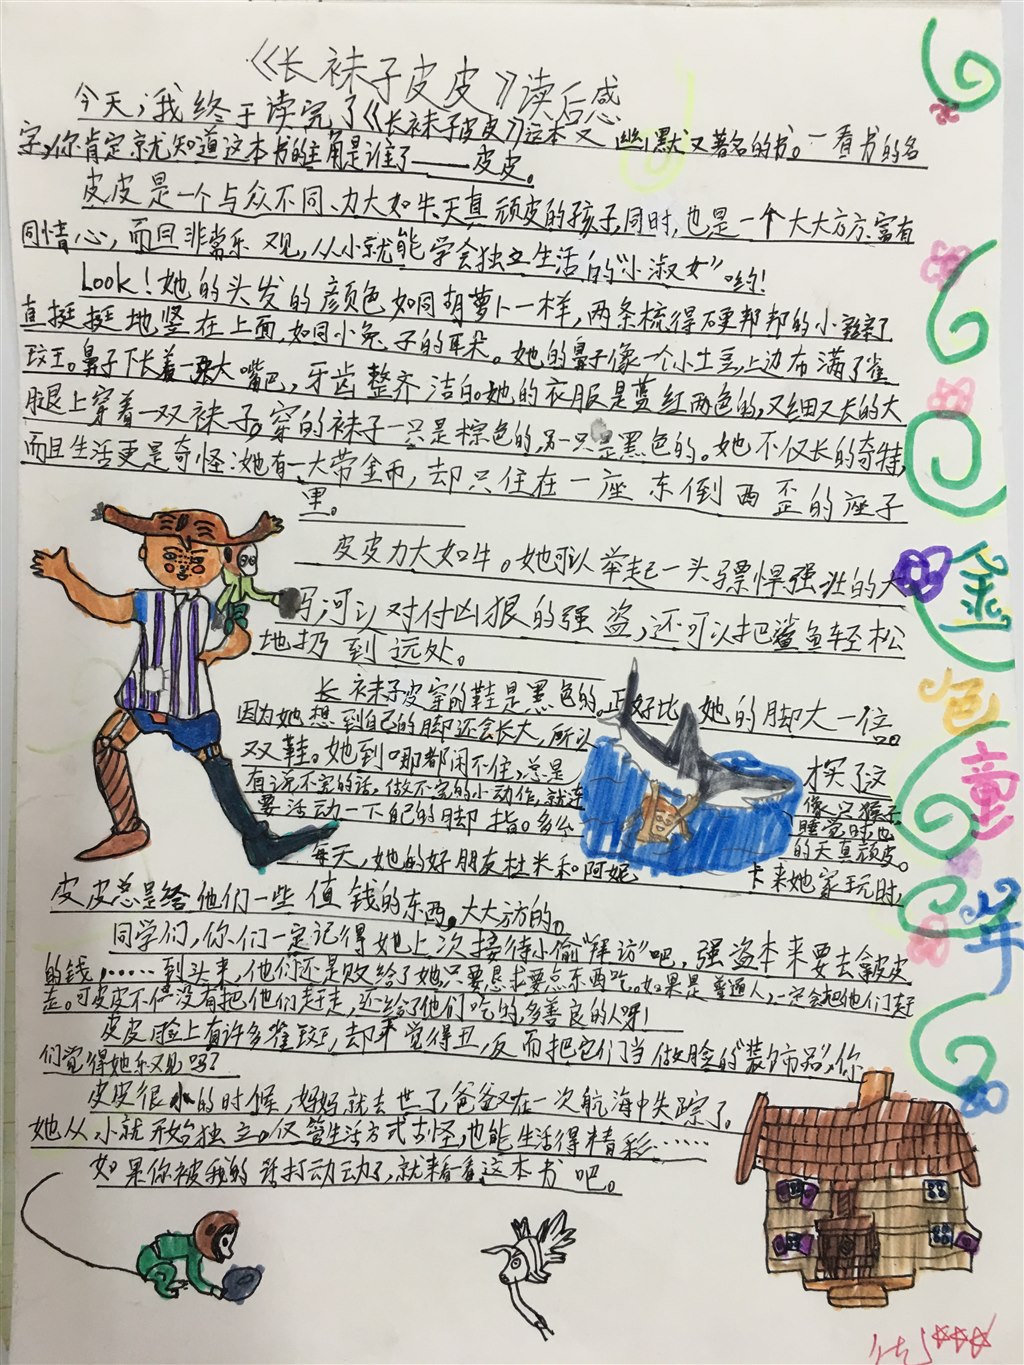 《长袜子皮皮》读后感
今天,我终于读完了《长袜子皮皮》这本又幽默又著名的书。一看书的名
字,你肯定就知道这本书的主角是谁了——皮皮。
皮皮是一个与众不同、力大如牛、天真顽皮的孩子,同时,也是一个大大方方、富有
同情心,而且非常乐观,从小就能学会独立生活的“小淑女”哟!
Look!她的头发的颜色如同胡萝卜一样,两条梳得硬邦邦的小辫子
直挺挺地竖在上面,如同小兔子的耳朵。她的鼻子像一个小土豆,上边布满了雀
斑。鼻子下长着一张大嘴巴,牙齿整齐洁白。她的衣服是蓝红两色的,又细又长的大
腿上穿着一双袜子。穿的袜子一只是棕色的,另一只是黑色的。她不仅长的奇特,
而且生活更是奇怪:她有一大带金币,却只住在一座东倒西歪的座子
里。
皮皮力大如牛。她可以举起一头骠悍强壮的大
马,可以对付凶狠的强盗,还可以把鲨鱼轻松
地扔到远处。
长袜子皮穿的鞋是黑色的。正好比她的脚大一倍
因为她想到自己的脚还会长大,所以
才买了这
双鞋。她到哪都闲不住,总是
像只猴子,
有说不完的话,做不完的小动作,就连
睡觉时,也
要活动一下自己的脚指。多么
的天真顽皮。
每天,她的好朋友杜米和阿妮
卡来她家玩时,
皮皮总是给他们一些值钱的东西。大大方方的。
同学们,你们一定记得她上次接待小偷“拜访”吧,强盗本来要去拿皮皮
的钱,……到头来,他们还是败给了她,只要恳求要点东西吃。如果是普通人,一定会把他们赶
走。可皮皮不但没有把他们赶走,还给了他们吃的,多善良的人呀!
皮皮脸上有许多雀斑,却不觉得丑,反而把它们当做脸的“装饰品”,你
们觉得她乐观吗?
皮皮很小的时候,妈妈就去世了,爸爸又在一次航海中失踪了。
她从小就开始独立。仅管生活方式古怪,也能生活得精彩……
如果你被我的话打动了,就来看看这本书吧。
金色童年